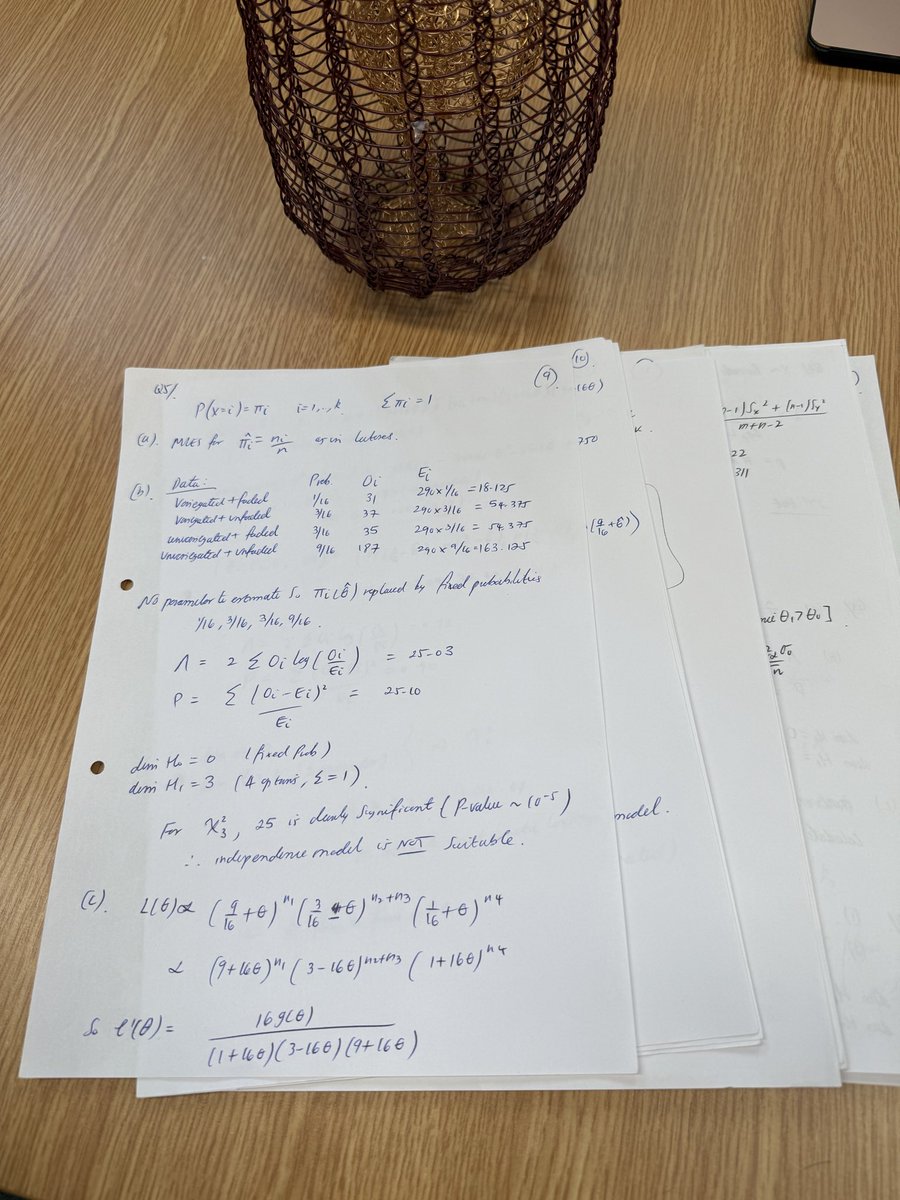 Q5/.
(9).
P(x=i) = πi   i=1,..,k.   Σπi = 1
(a). MLEs for π̂i = ni/n as in lectures.
(b). Data:   Prob.   Oi   Ei
Variegated + faded   1/16   31   290 x 1/16 = 18.125
Variegated + unfaded   3/16   37   290 x 3/16 = 54.375
unvariegated + faded   3/16   35   290 x 3/16 = 54.375
Unvariegated + unfaded   9/16   187   290 x 9/16 = 163.125
No parameter to estimate so πi(θ̂) replaced by fixed probabilities
1/16, 3/16, 3/16, 9/16.
Λ = 2 Σ Oi log(Oi/Ei) = 25.03
P = Σ (Oi - Ei)²/Ei = 25.10
dim H0 = 0 (fixed Prob)
dim H1 = 3 (4 options, Σ = 1).
For χ²3, 25 is clearly significant (P-value ~ 10^-5)
∴ independence model is NOT suitable.
(c). L(θ) ∝ (9/16 + θ)^n1 (3/16 - θ)^n2+n3 (1/16 + θ)^n4
∝ (9+16θ)^n1 (3-16θ)^n2+n3 (1+16θ)^n4
So ℓ'(θ) = 16g(θ) / (1+16θ)(3-16θ)(9+16θ)
(10.
16θ)
750
(9/16 + θ̂)
model.
-1)Sx² + (n-1)Sy²
m+n-2
22
311
θ1 > θ0].
σ0
n